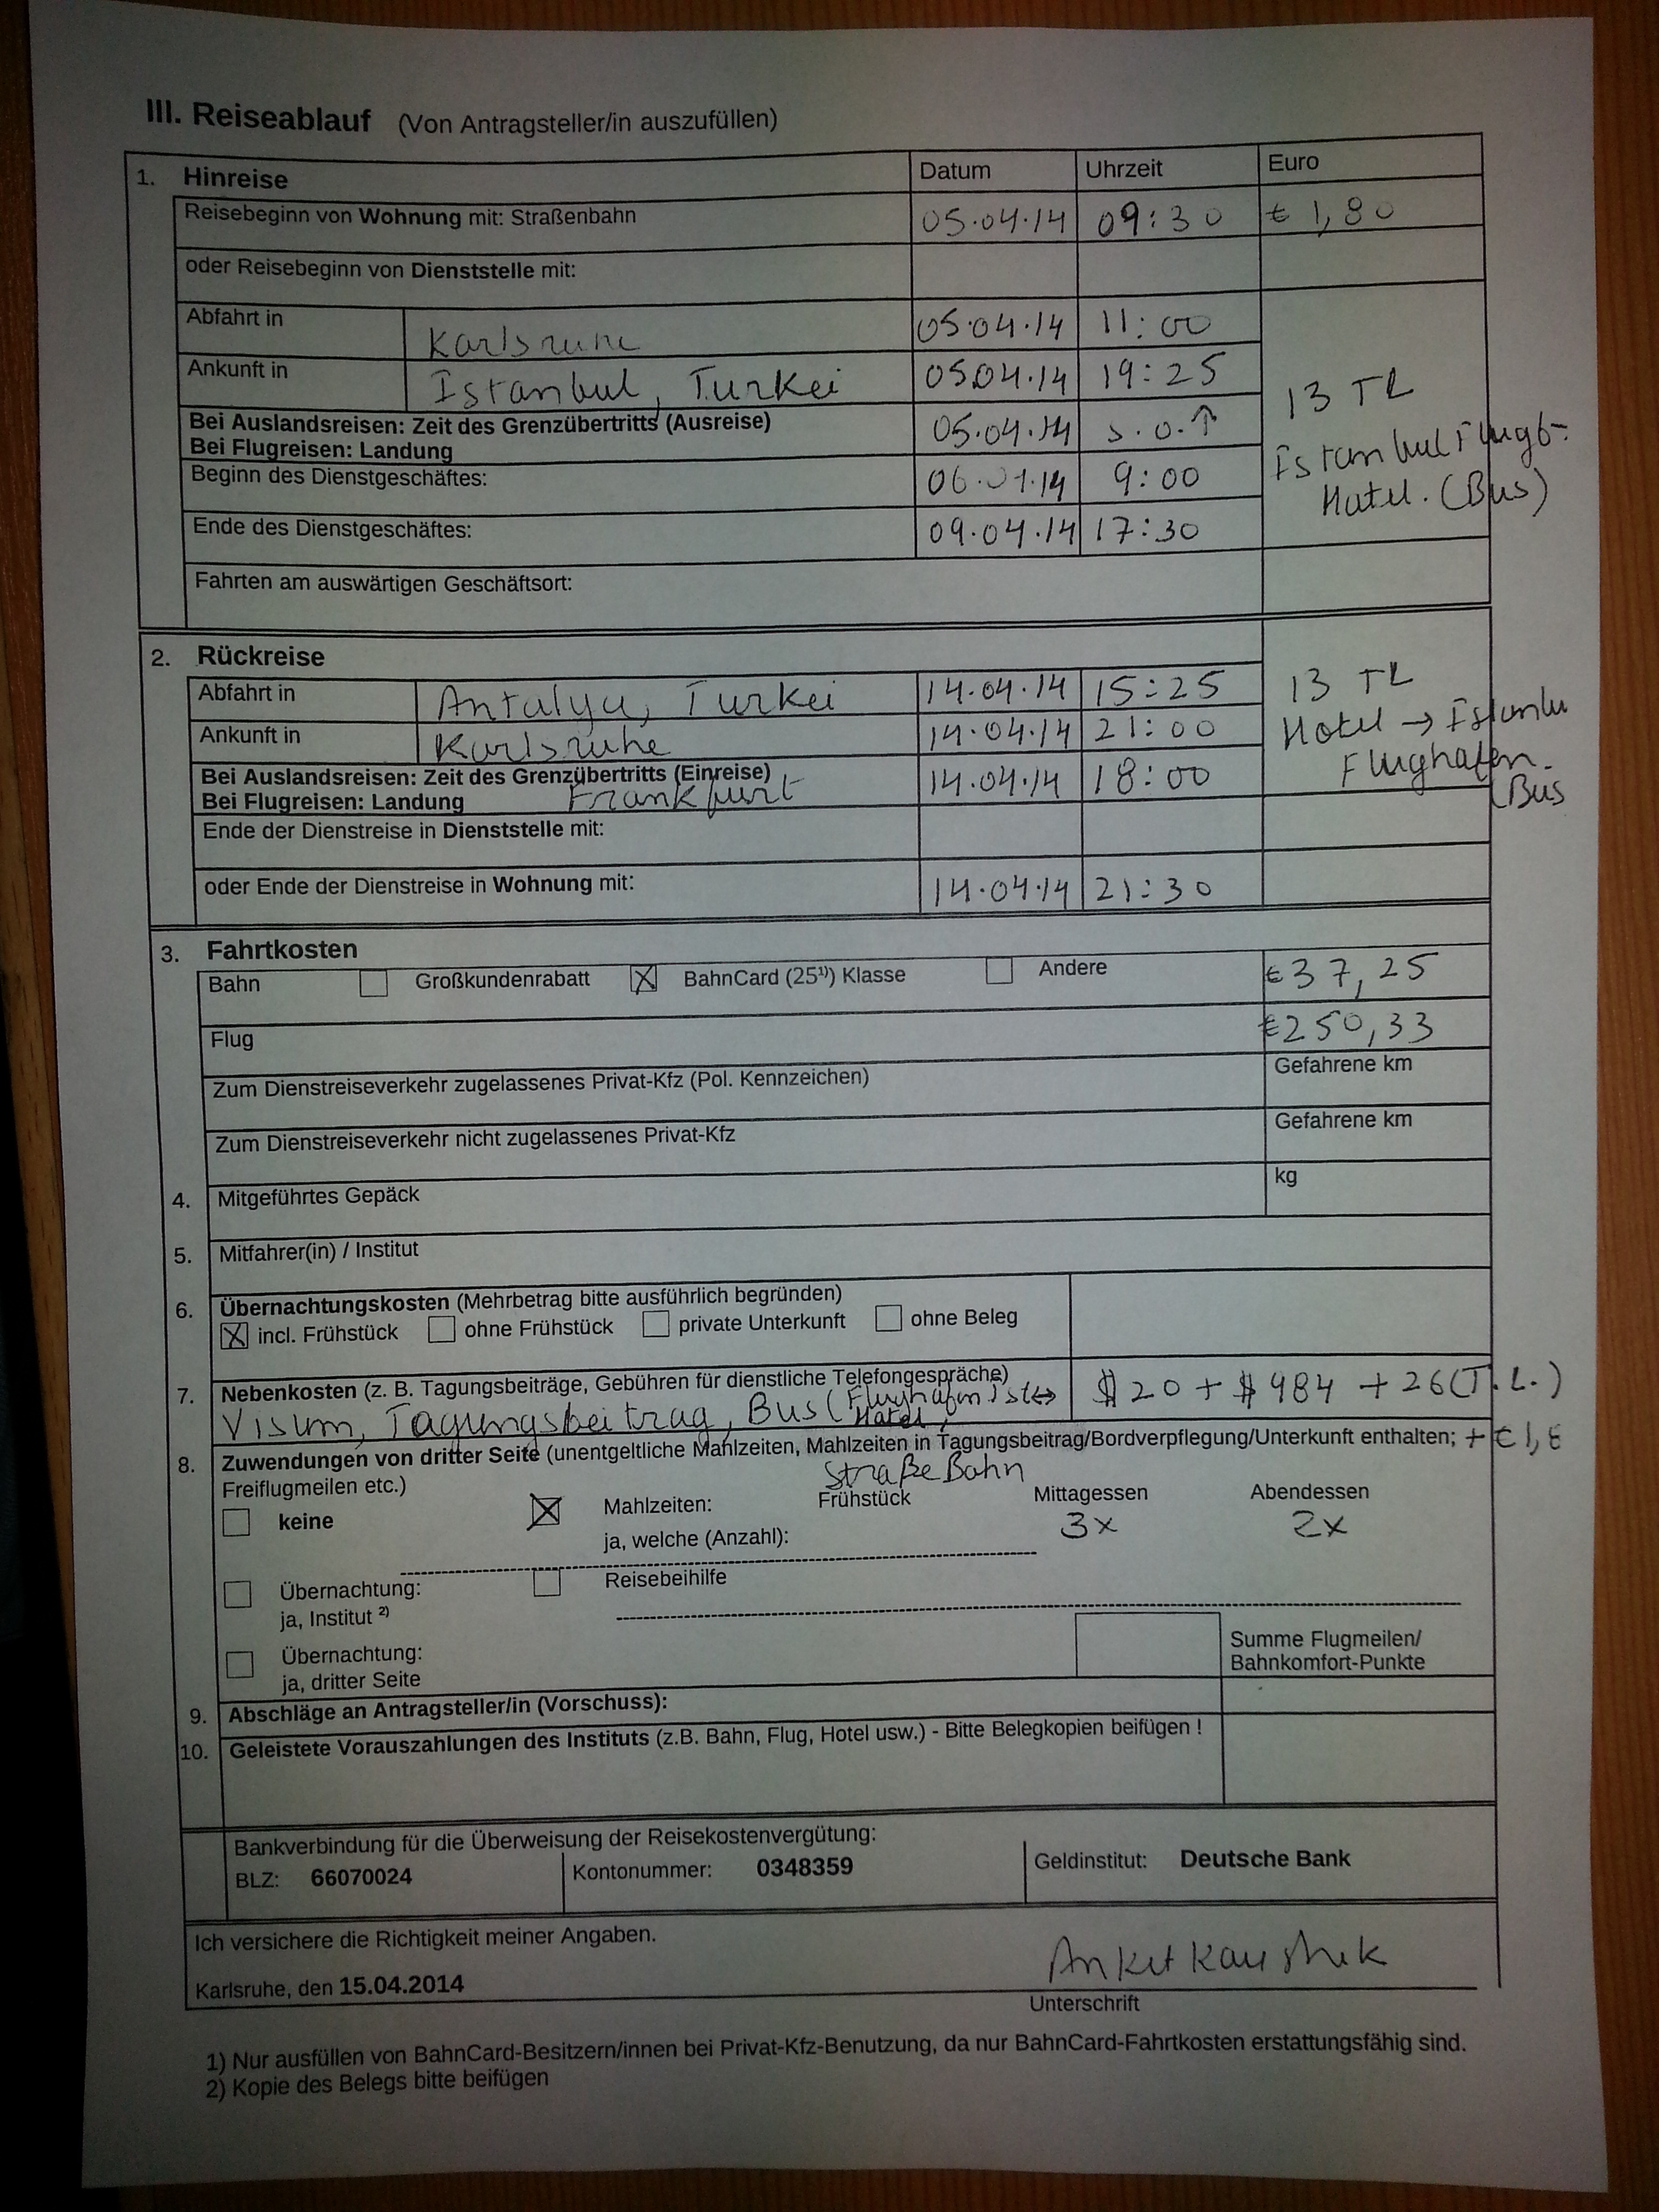 III. Reiseablauf (Von Antragsteller/in auszufüllen)
1. Hinreise Datum Uhrzeit Euro
Reisebeginn von Wohnung mit: Straßenbahn 05.04.14 09:30 € 1,80
oder Reisebeginn von Dienststelle mit:
Abfahrt in Karlsruhe 05.04.14 11:00
Ankunft in Istanbul, Turkei 05.04.14 19:25
13 TL
Istanbul Flugh-
Hotel. (Bus)
Bei Auslandsreisen: Zeit des Grenzübertritts (Ausreise)
Bei Flugreisen: Landung 05.04.14 s.o.↑
Beginn des Dienstgeschäftes: 06.04.14 9:00
Ende des Dienstgeschäftes: 09.04.14 17:30
Fahrten am auswärtigen Geschäftsort:
2. Rückreise
Abfahrt in Antalya, Turkei 14.04.14 15:25
Ankunft in Karlsruhe 14.04.14 21:00
13 TL
Hotel → Istanbu
Flughafen.
(Bus
Bei Auslandsreisen: Zeit des Grenzübertritts (Einreise)
Bei Flugreisen: Landung Frankfurt 14.04.14 18:00
Ende der Dienstreise in Dienststelle mit:
oder Ende der Dienstreise in Wohnung mit: 14.04.14 21:30
3. Fahrtkosten
Bahn Großkundenrabatt X BahnCard (25¹⁾) Klasse Andere € 37,25
Flug €250,33
Zum Dienstreiseverkehr zugelassenes Privat-Kfz (Pol. Kennzeichen) Gefahrene km
Zum Dienstreiseverkehr nicht zugelassenes Privat-Kfz Gefahrene km
4. Mitgeführtes Gepäck kg
5. Mitfahrer(in) / Institut
6. Übernachtungskosten (Mehrbetrag bitte ausführlich begründen)
X incl. Frühstück ohne Frühstück private Unterkunft ohne Beleg
7. Nebenkosten (z. B. Tagungsbeiträge, Gebühren für dienstliche Telefongespräche)
Visum, Tagungsbeitrag, Bus (Flughafen Ist↔ $20 + $984 + 26(T.L.)
Hotel,
8. Zuwendungen von dritter Seite (unentgeltliche Mahlzeiten, Mahlzeiten in Tagungsbeitrag/Bordverpflegung/Unterkunft enthalten; + € 1,
Freiflugmeilen etc.) StraßeBahn
keine X Mahlzeiten: Frühstück Mittagessen Abendessen
ja, welche (Anzahl): 3x 2x
Übernachtung: Reisebeihilfe
ja, Institut ²⁾
Übernachtung:
ja, dritter Seite
Summe Flugmeilen/
Bahnkomfort-Punkte
9. Abschläge an Antragsteller/in (Vorschuss):
10. Geleistete Vorauszahlungen des Instituts (z.B. Bahn, Flug, Hotel usw.) - Bitte Belegkopien beifügen !
Bankverbindung für die Überweisung der Reisekostenvergütung:
BLZ: 66070024 Kontonummer: 0348359 Geldinstitut: Deutsche Bank
Ich versichere die Richtigkeit meiner Angaben.
Karlsruhe, den 15.04.2014 Ankit Kaushik
Unterschrift
1) Nur ausfüllen von BahnCard-Besitzern/innen bei Privat-Kfz-Benutzung, da nur BahnCard-Fahrtkosten erstattungsfähig sind.
2) Kopie des Belegs bitte beifügen